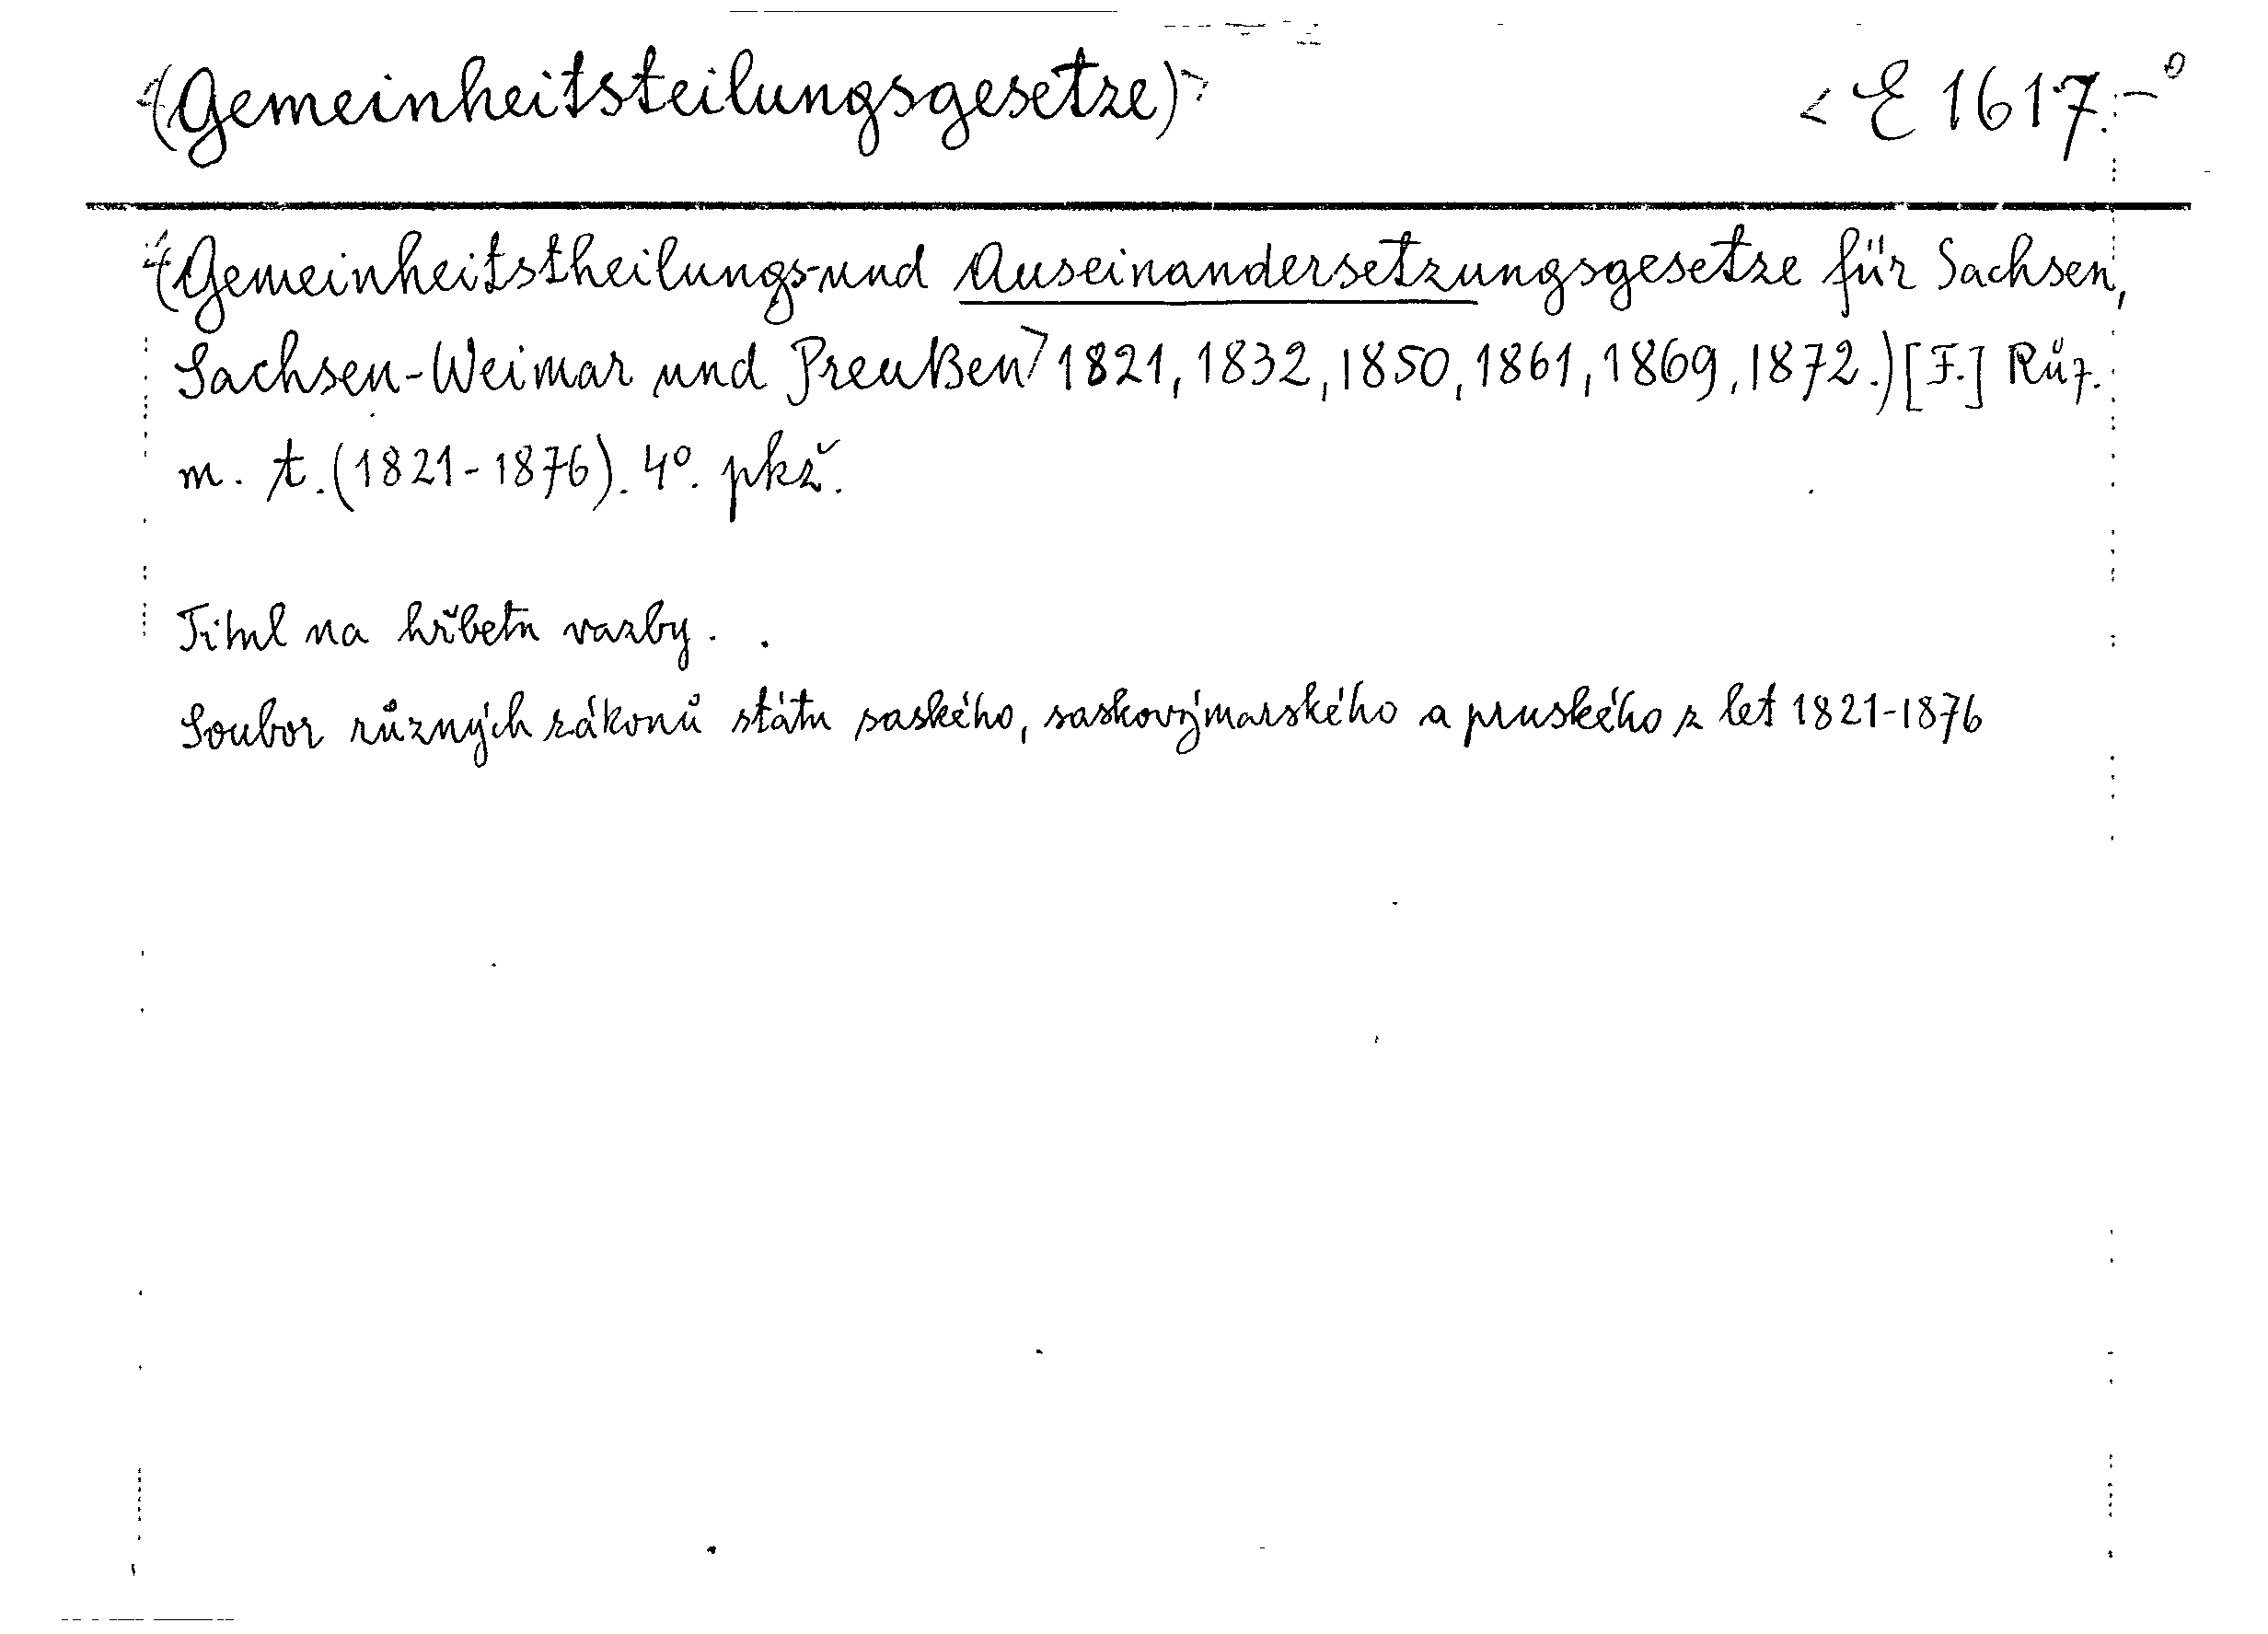 (Gemeinheitsteilungsgesetze)> <E 1617.-°
(Gemeinheitstheilungs-und Auseinandersetzungsgesetze für Sachsen,
Sachsen-Weimar und Preußen> 1821, 1832, 1850, 1861, 1869, 1872.) [F.] Růz.
m. t. (1821-1876). 4°. pkž.
Titul na hřbetu vazby.
Soubor různých zákonů státu saského, saskovýmarského a pruského z let 1821-1876